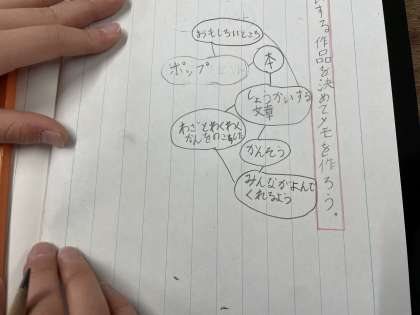 する作品を決めてメモを作ろう。
本
おもしろいところ
ポップ
しょうかいする
文章
わざとわくわく
かんをのこあした
かんそう
みんながよんで
くれるよう